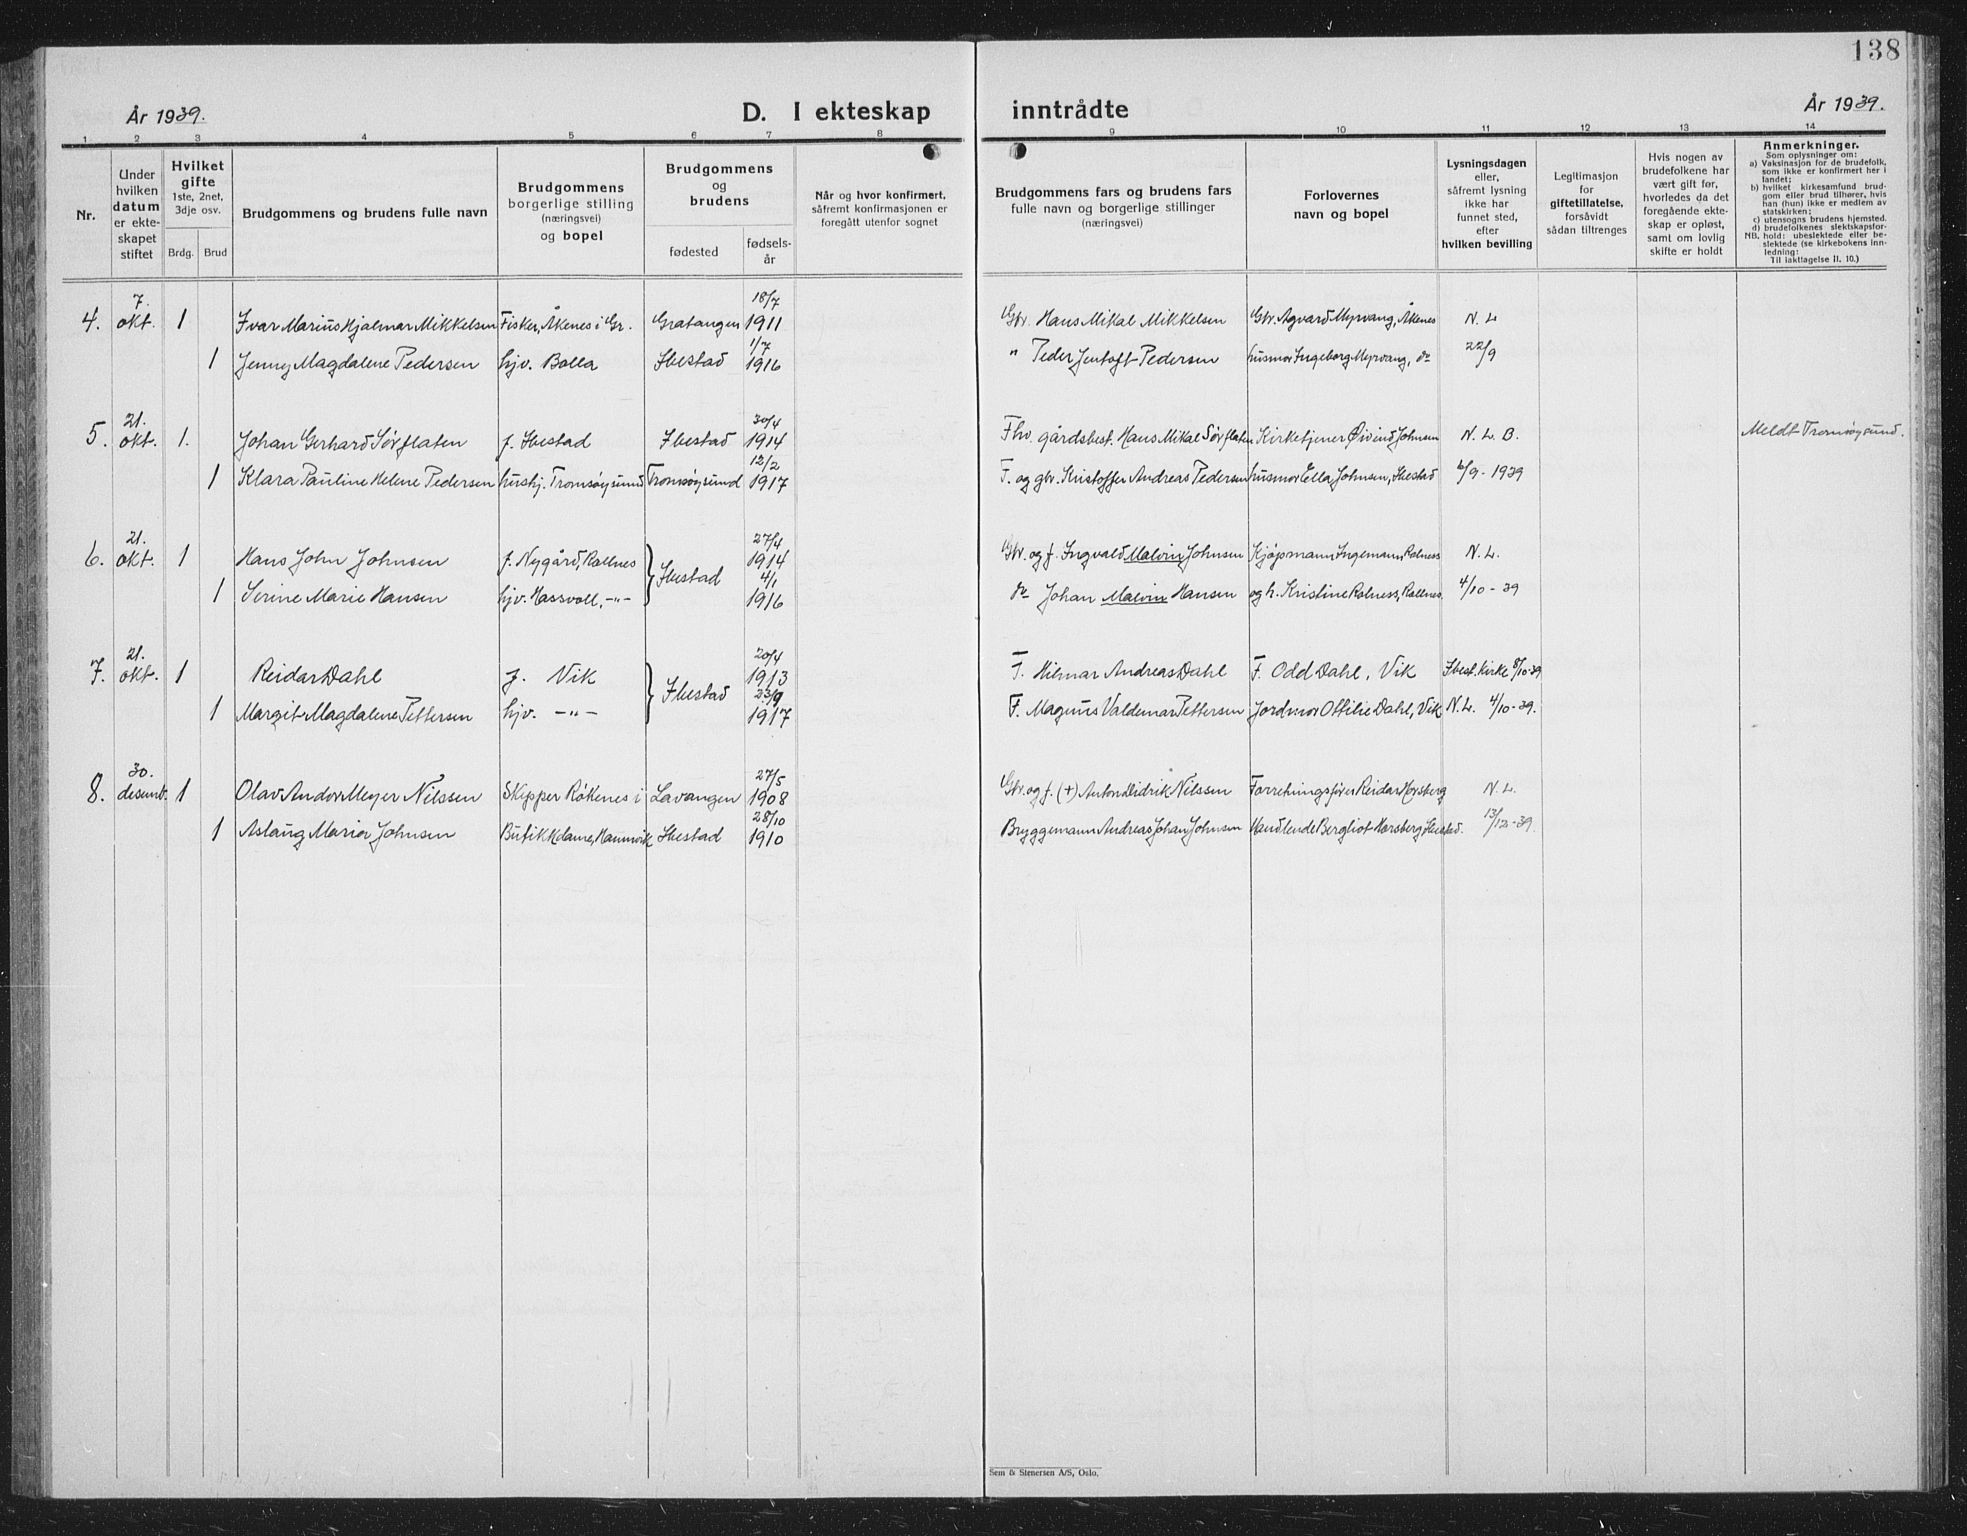 138
År 1939.
D. I ekteskap inntrådte
År 1939.
1 2 3 4 5 6 7 8 9 10 11 12 13 14
Nr.
Under hvilken datum er ekteskapet stiftet
Hvilket gifte
1ste, 2net, 3dje osv.
Brdg. Brud
Brudgommens og brudens fulle navn
Brudgommens borgerlige stilling (næringsvei) og bopel
Brudgommens og brudens
fødested
fødselsår
Når og hvor konfirmert, såfremt konfirmasjonen er foregått utenfor sognet
Brudgommens fars og brudens fars fulle navn og borgerlige stillinger (næringsvei)
Forlovernes navn og bopel
Lysningsdagen eller, såfremt lysning ikke har funnet sted, efter hvilken bevilling
Legitimasjon for giftetillatelse, forsåvidt sådan tiltrenges
Hvis nogen av brudefolkene har vært gift før, hvorledes da det foregående ekteskap er opløst, samt om lovlig skifte er holdt
Anmerkninger.
Som oplysninger om:
a) Vaksinasjon for de brudefolk, som ikke er konfirmert her i landet;
b) hvilket kirkesamfund brudgom eller brud tilhører, hvis han (hun) ikke er medlem av statskirken;
c) utensogns brudens hjemsted.
d) brudefolkenes slektskapsforhold: ubeslektede eller beslektede (se kirkebokens innledning:
NB.
Til iakttagelse II. 10.)
4. 7. okt. 1 Ivar Marius Hjalmar Mikkelsen Fisker, Åkenes i Gr. Gratangen 18/7 1911 Gbr. Hans Mikal Mikkelsen Gbr. Agvard Myrvang, Åkenes N. L
1 Jenny Magdalene Pedersen hjv. Bolla Ibestad 1/7 1916 " Peder Jentoft Pedersen husmor Ingeborg Myrvang, do 22/9
5. 21. okt. 1. Johan Gerhard Sørflaten f. Ibestad Ibestad 30/4 1914 Fhv. gårdsbest. Hans Mikal Sørflaten Kirketjener Øivind Johnsen N. L. B. Meldt Tromsøysund.
1 Klara Pauline Helene Pedersen hushj. Tromsøysund Tromsøysund 12/2 1917 F. og gbr. Kristoffer Andreas Pedersen husmor Ella Johnsen, Ibestad 6/9 - 1939
6. 21. okt. 1 Hans John Johnsen f. Nygård, Rollnes Ibestad 27/4 1914 Gbr. og f. Ingvald Malvin Johnsen Kjøpmann Ingemann Rolness N. L.
1 Serine Marie Hansen hjv. Hassvoll, -"- 4/1 1916 do Johan Malvin Hansen og h. Kristine Rolness, Rollnes. 4/10 - 39
7. 21. okt. 1 Reidar Dahl f. Vik Ibestad 20/4 1913 F. Hilmar Andreas Dahl F. Odd Dahl, Vik Ibest. Kirke 8/10-39
1 Margit Magdalene Pettersen hjv. -"- 23/9 1917 F. Magnus Valdemar Pettersen Jordmor Ottilie Dahl, Vik N. L. 4/10 - 39.
8. 30. desemb. 1 Olav Andor Meyer Nilssen Skipper Røkenes i Lavangen 27/5 1908 Gbr. og f. (+) Anton Didrik Nilssen Forretningsfører Reidar Horsberg N. L.
1 Aslaug Maria Johnsen Butikkdame, Hamnvik Ibestad 28/10 1910 Bryggemann Andreas Johan Johnsen Handlende Bergliot Horsberg, Ibestad. 13/12-39.
Sem & Stenersen A/S, Oslo.